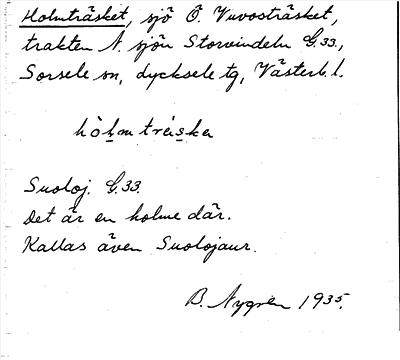 Holmträsket, sjö Ö. Vuvosträsket,
trakten N. sjön Storvindeln G.33.,
Sorsele sn, Lycksele tg, Västerb. l.
hòlmträska
Suoloj. G.33.
Det är en holme där.
Kallas även Suolojaur.
B. Nygren 1935.